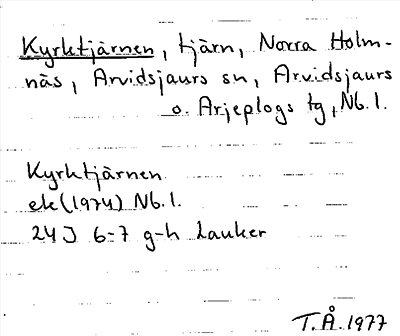 Kyrktjärnen, tjärn, Norra Holm-
näs, Arvidsjaurs sn, Arvidsjaurs
o. Arjeplogs tg, Nb. l.
Kyrktjärnen
ek (1974) Nb. l.
24J 6-7 g-h Lauker
T.Å. 1977